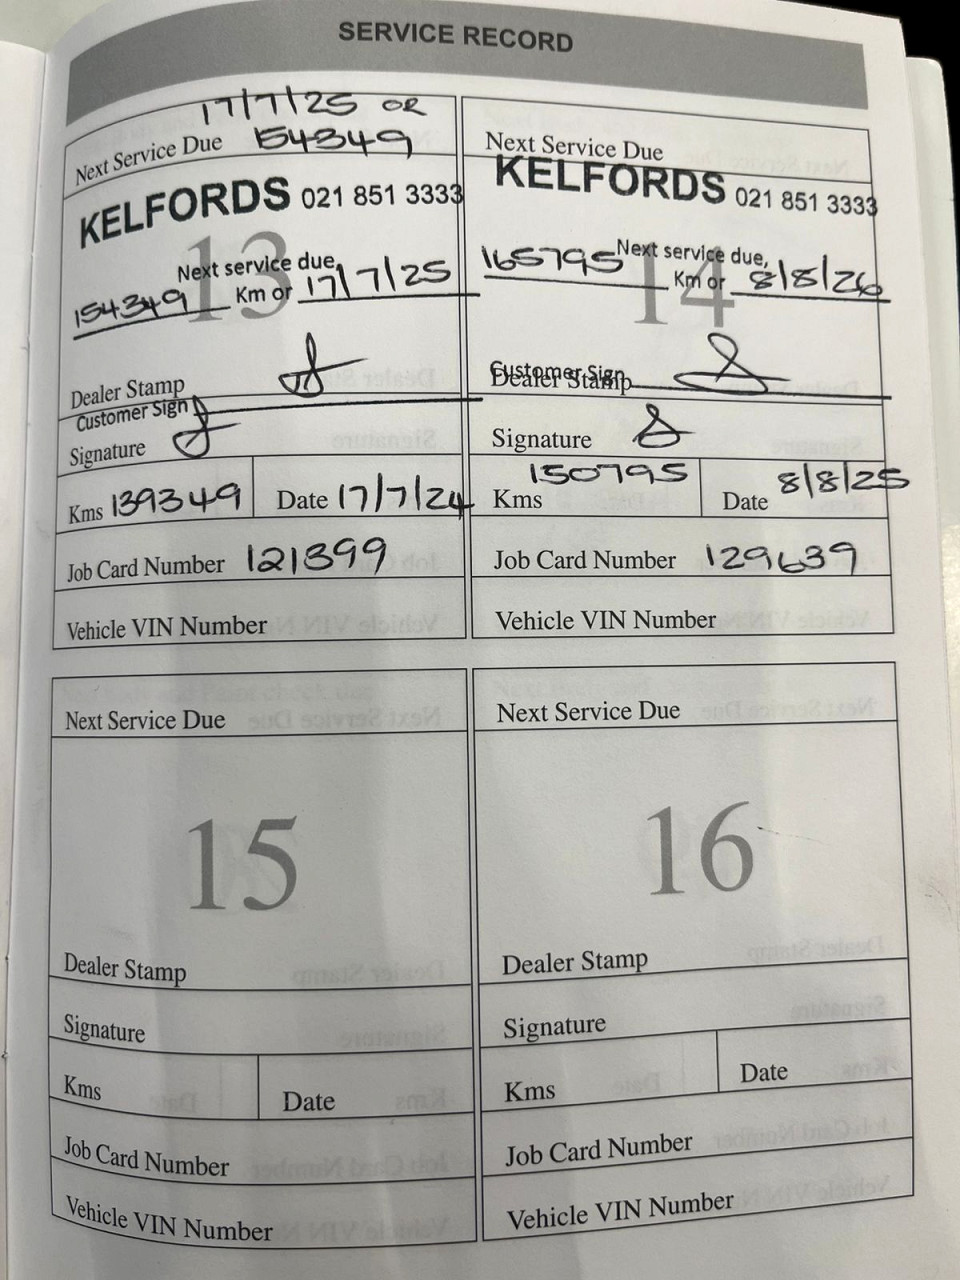 SERVICE RECORD
17/7/25 OR
Next Service Due 154349
KELFORDS 021 851 3333
13
Next service due,
154349 Km or 17/7/25
Dealer Stamp
Customer Sign
Signature
Kms 139349 Date 17/7/24
Job Card Number 121899
Vehicle VIN Number
Next Service Due
KELFORDS 021 851 3333
14
Next service due,
165795 Km or 8/8/26
Customer Sign
Dealer Stamp
Signature
Kms 150795 Date 8/8/25
Job Card Number 129639
Vehicle VIN Number
Next Service Due
15
Dealer Stamp
Signature
Kms Date
Job Card Number
Vehicle VIN Number
Next Service Due
16
Dealer Stamp
Signature
Kms Date
Job Card Number
Vehicle VIN Number